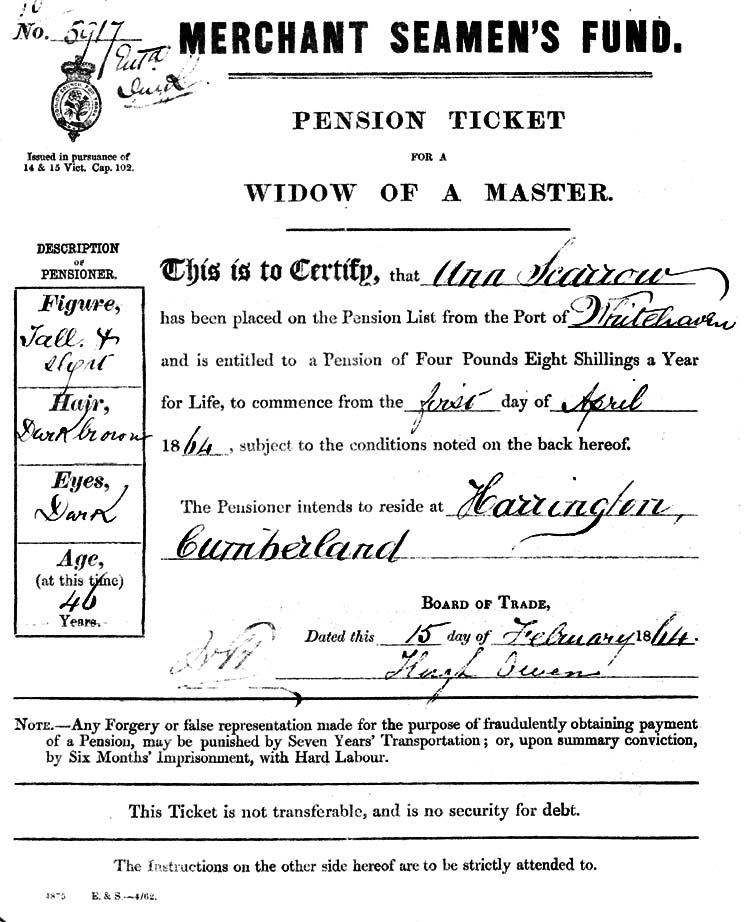 No. 5917 MERCHANT SEAMEN'S FUND.
PENSION TICKET
FOR A
WIDOW OF A MASTER.
Issued in pursuance of
14 & 15 Vict. Cap. 102.
DESCRIPTION
OF
PENSIONER.
Figure,
Tall. &
slight
Hair,
Dark brown
Eyes,
Dark
Age,
(at this time)
46
Years.
This is to Certify, that Ann Scarrow
has been placed on the Pension List from the Port of Whitehaven
and is entitled to a Pension of Four Pounds Eight Shillings a Year
for Life, to commence from the first day of April
1864, subject to the conditions noted on the back hereof.
The Pensioner intends to reside at Harrington,
Cumberland
BOARD OF TRADE,
Dated this 15 day of February 1864.
Hugh Owen
NOTE.—Any Forgery or false representation made for the purpose of fraudulently obtaining payment
of a Pension, may be punished by Seven Years' Transportation; or, upon summary conviction,
by Six Months' Imprisonment, with Hard Labour.
This Ticket is not transferable, and is no security for debt.
The Instructions on the other side hereof are to be strictly attended to.
4875 E. & S.—4/62.